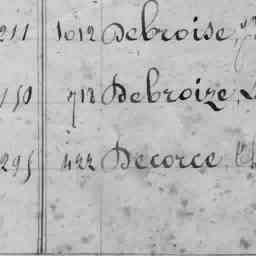 211 1012 Debroise,
150 712 Debroize,
295 422 Decorce,